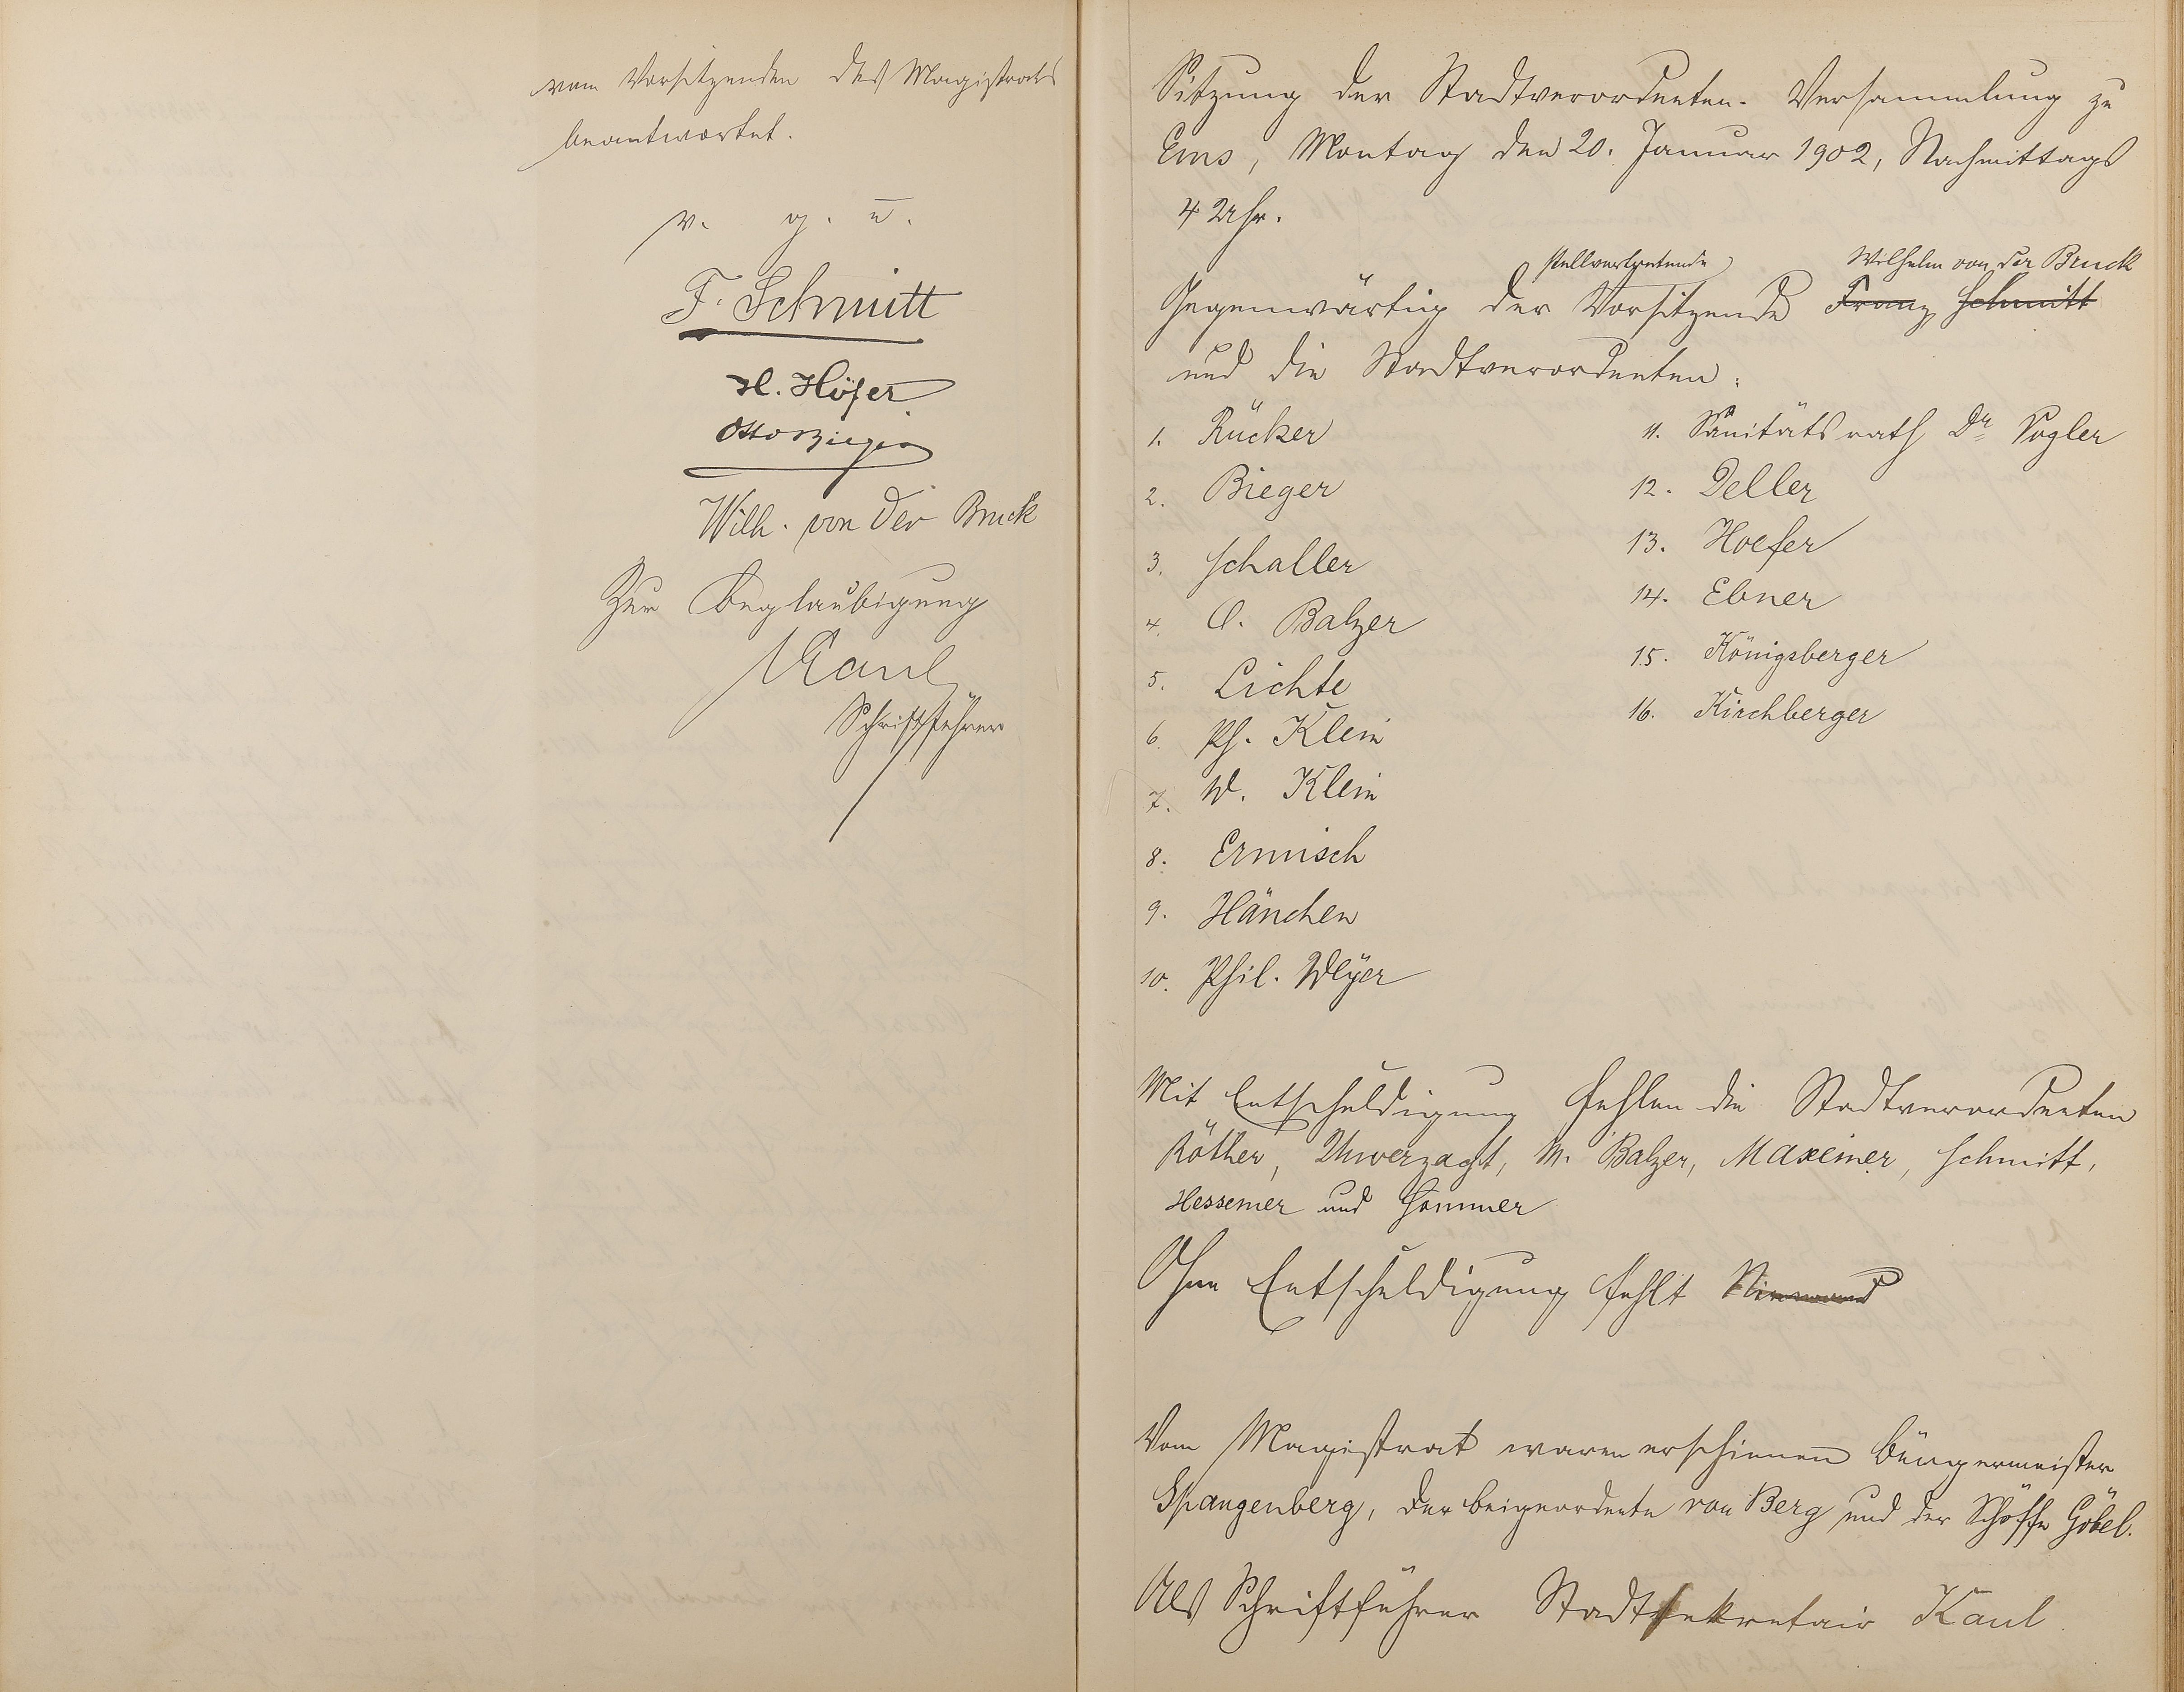 vom Vorsitzenden des Magistrats
beantwortet.
v. g. u.
F. Schmitt
H. Höfer
Otto Bieger
Wilh. von der Bruck
Zur Beglaubigung
Kaul
Schriftführer
Sitzung der Stadtverordneten-Versammlung zu
Ems, Montag den 20. Januar 1902, Nachmittags
4 Uhr.
stellvertretende Wilhelm von der Bruck
Gegenwärtig der Vorsitzende Franz Schmitt
und die Stadtverordneten:
1. Rücker
2. Bieger
3. Schaller
4. O. Balzer
5. Lichte
6. Ph. Klein
7. W. Klein
8. Ermisch
9. Hänchen
10. Phil. Weyer
11. Sanitätsrath Dr Vogler
12. Deller
13. Hoefer
14. Ebner
15. Königsberger
16. Kirchberger
Mit Entschuldigung fehlen die Stadtverordneten
Röther, Unverzagt, M. Balzer, Maxeiner, Schmitt,
Hessemer und Sommer
Ohne Entschuldigung fehlt Niemand
Vom Magistrat waren erschienen Bürgermeister
Spangenberg, der Beigeordnete von Berg und der Schöffe Göbel.
Als Schriftführer Stadtsekretair Kaul